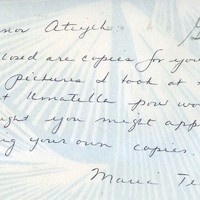 nor Atiyeh:
closed are copies for you
pictures I took at
t Umatilla pow wow
ught you might app
ing your own copies.
Maria Te